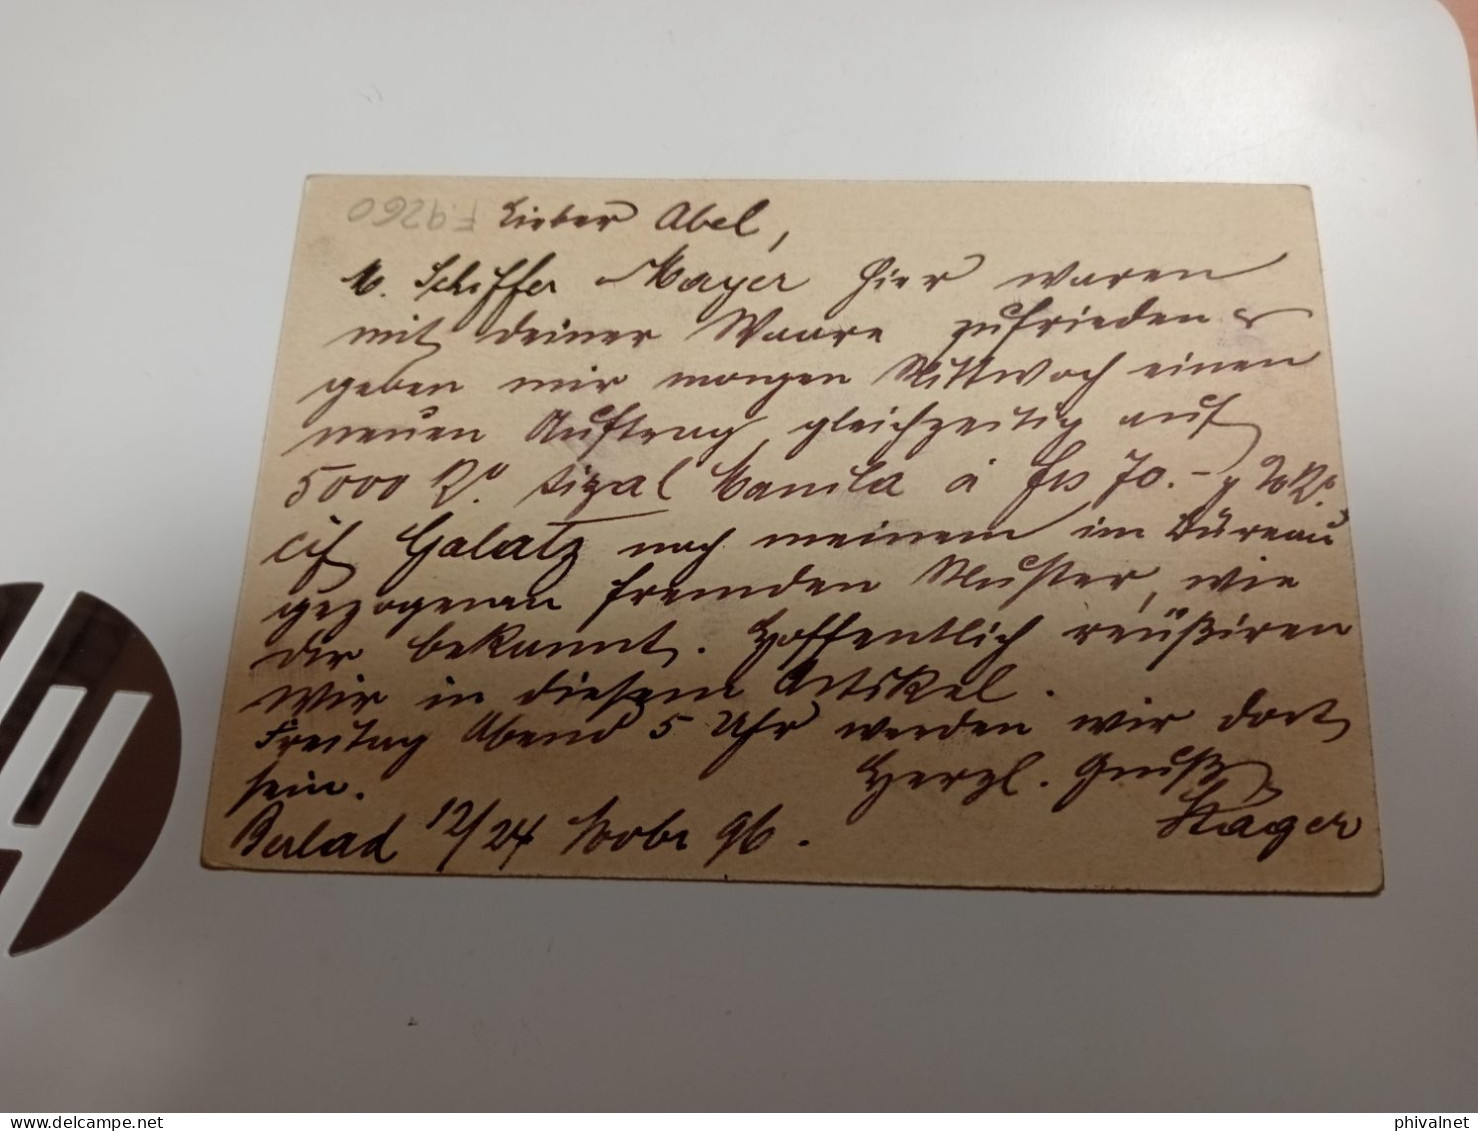 F.9260
Lieber Abel,
M. Schiffer Mayer hier waren
mit deiner Waare zufrieden &
geben mir morgen Mittwoch einen
neuen Auftrag, gleichzeitig auf
5000 Ko. Sizal Manila à frs 70.-
cif Galatz nach meinem im Büreau
gezogenen fremden Muster, wie
dir bekannt. Hoffentlich reüßiren
wir in diesem Artikel.
Freitag Abend 5 Uhr werden wir dort
sein. Herzl. Gruß
Berlad 12/24 Novbr 96.
hp
phivalnet